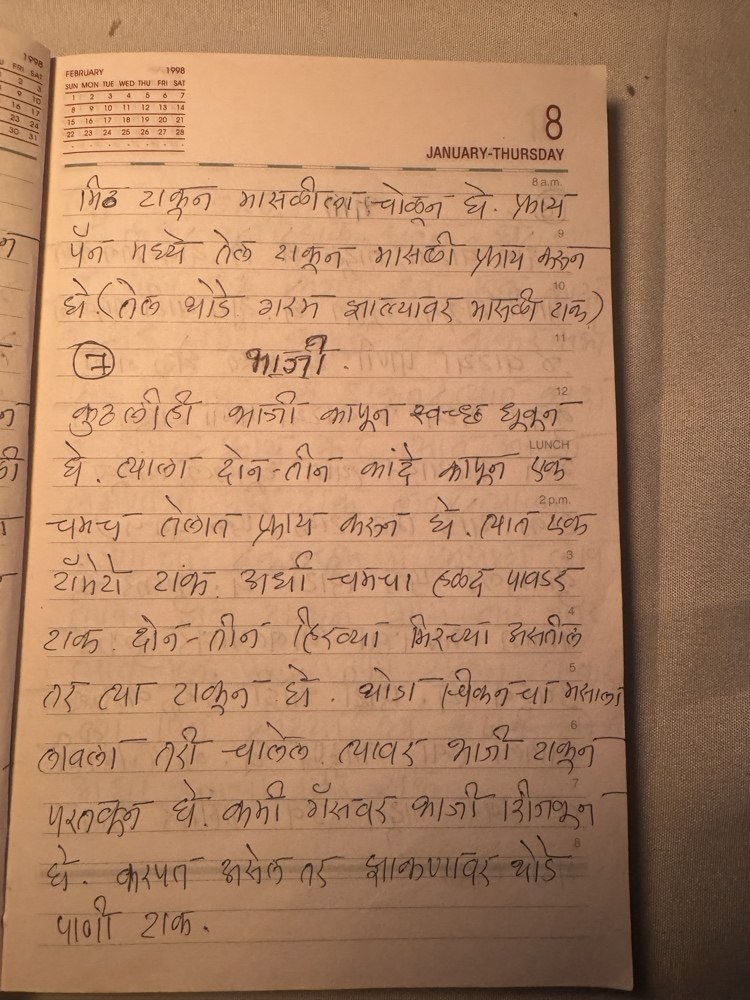 1998
FRI SAT
2 3
9 10
16 17
23 24
30 31
FEBRUARY 1998
SUN MON TUE WED THU FRI SAT
1 2 3 4 5 6 7
8 9 10 11 12 13 14
15 16 17 18 19 20 21
22 23 24 25 26 27 28
8
JANUARY-THURSDAY
8 a.m.
मिठ टाकून मासळीला चोळून घे. फ्राय
9
पॅन मध्ये तेल टाकून मासळी फ्राय करून
10
घे. (तेल थोडे गरम झाल्यावर मासळी टाक)
11
7 भाजी.
12
कुठलीही भाजी कापून स्वच्छ धूवून
LUNCH
घे. त्याला दोन-तीन कांदे कापून एक
2 p.m.
चमच तेलात फ्राय करून घे. त्यात एक
3
टॉमेटो टाक. अर्धा चमचा हळद पावडर
4
टाक. दोन-तीन हिरव्या मिरच्या असतील
5
तर त्या टाकून घे. थोडा चिकनचा मसाला
6
लावला तरी चालेल. त्यावर भाजी टाकून
7
परतवून घे. कमी गॅसवर भाजी शिजवून
8
घे. करपत असेल तर झाकणावर थोडे
पाणी टाक.